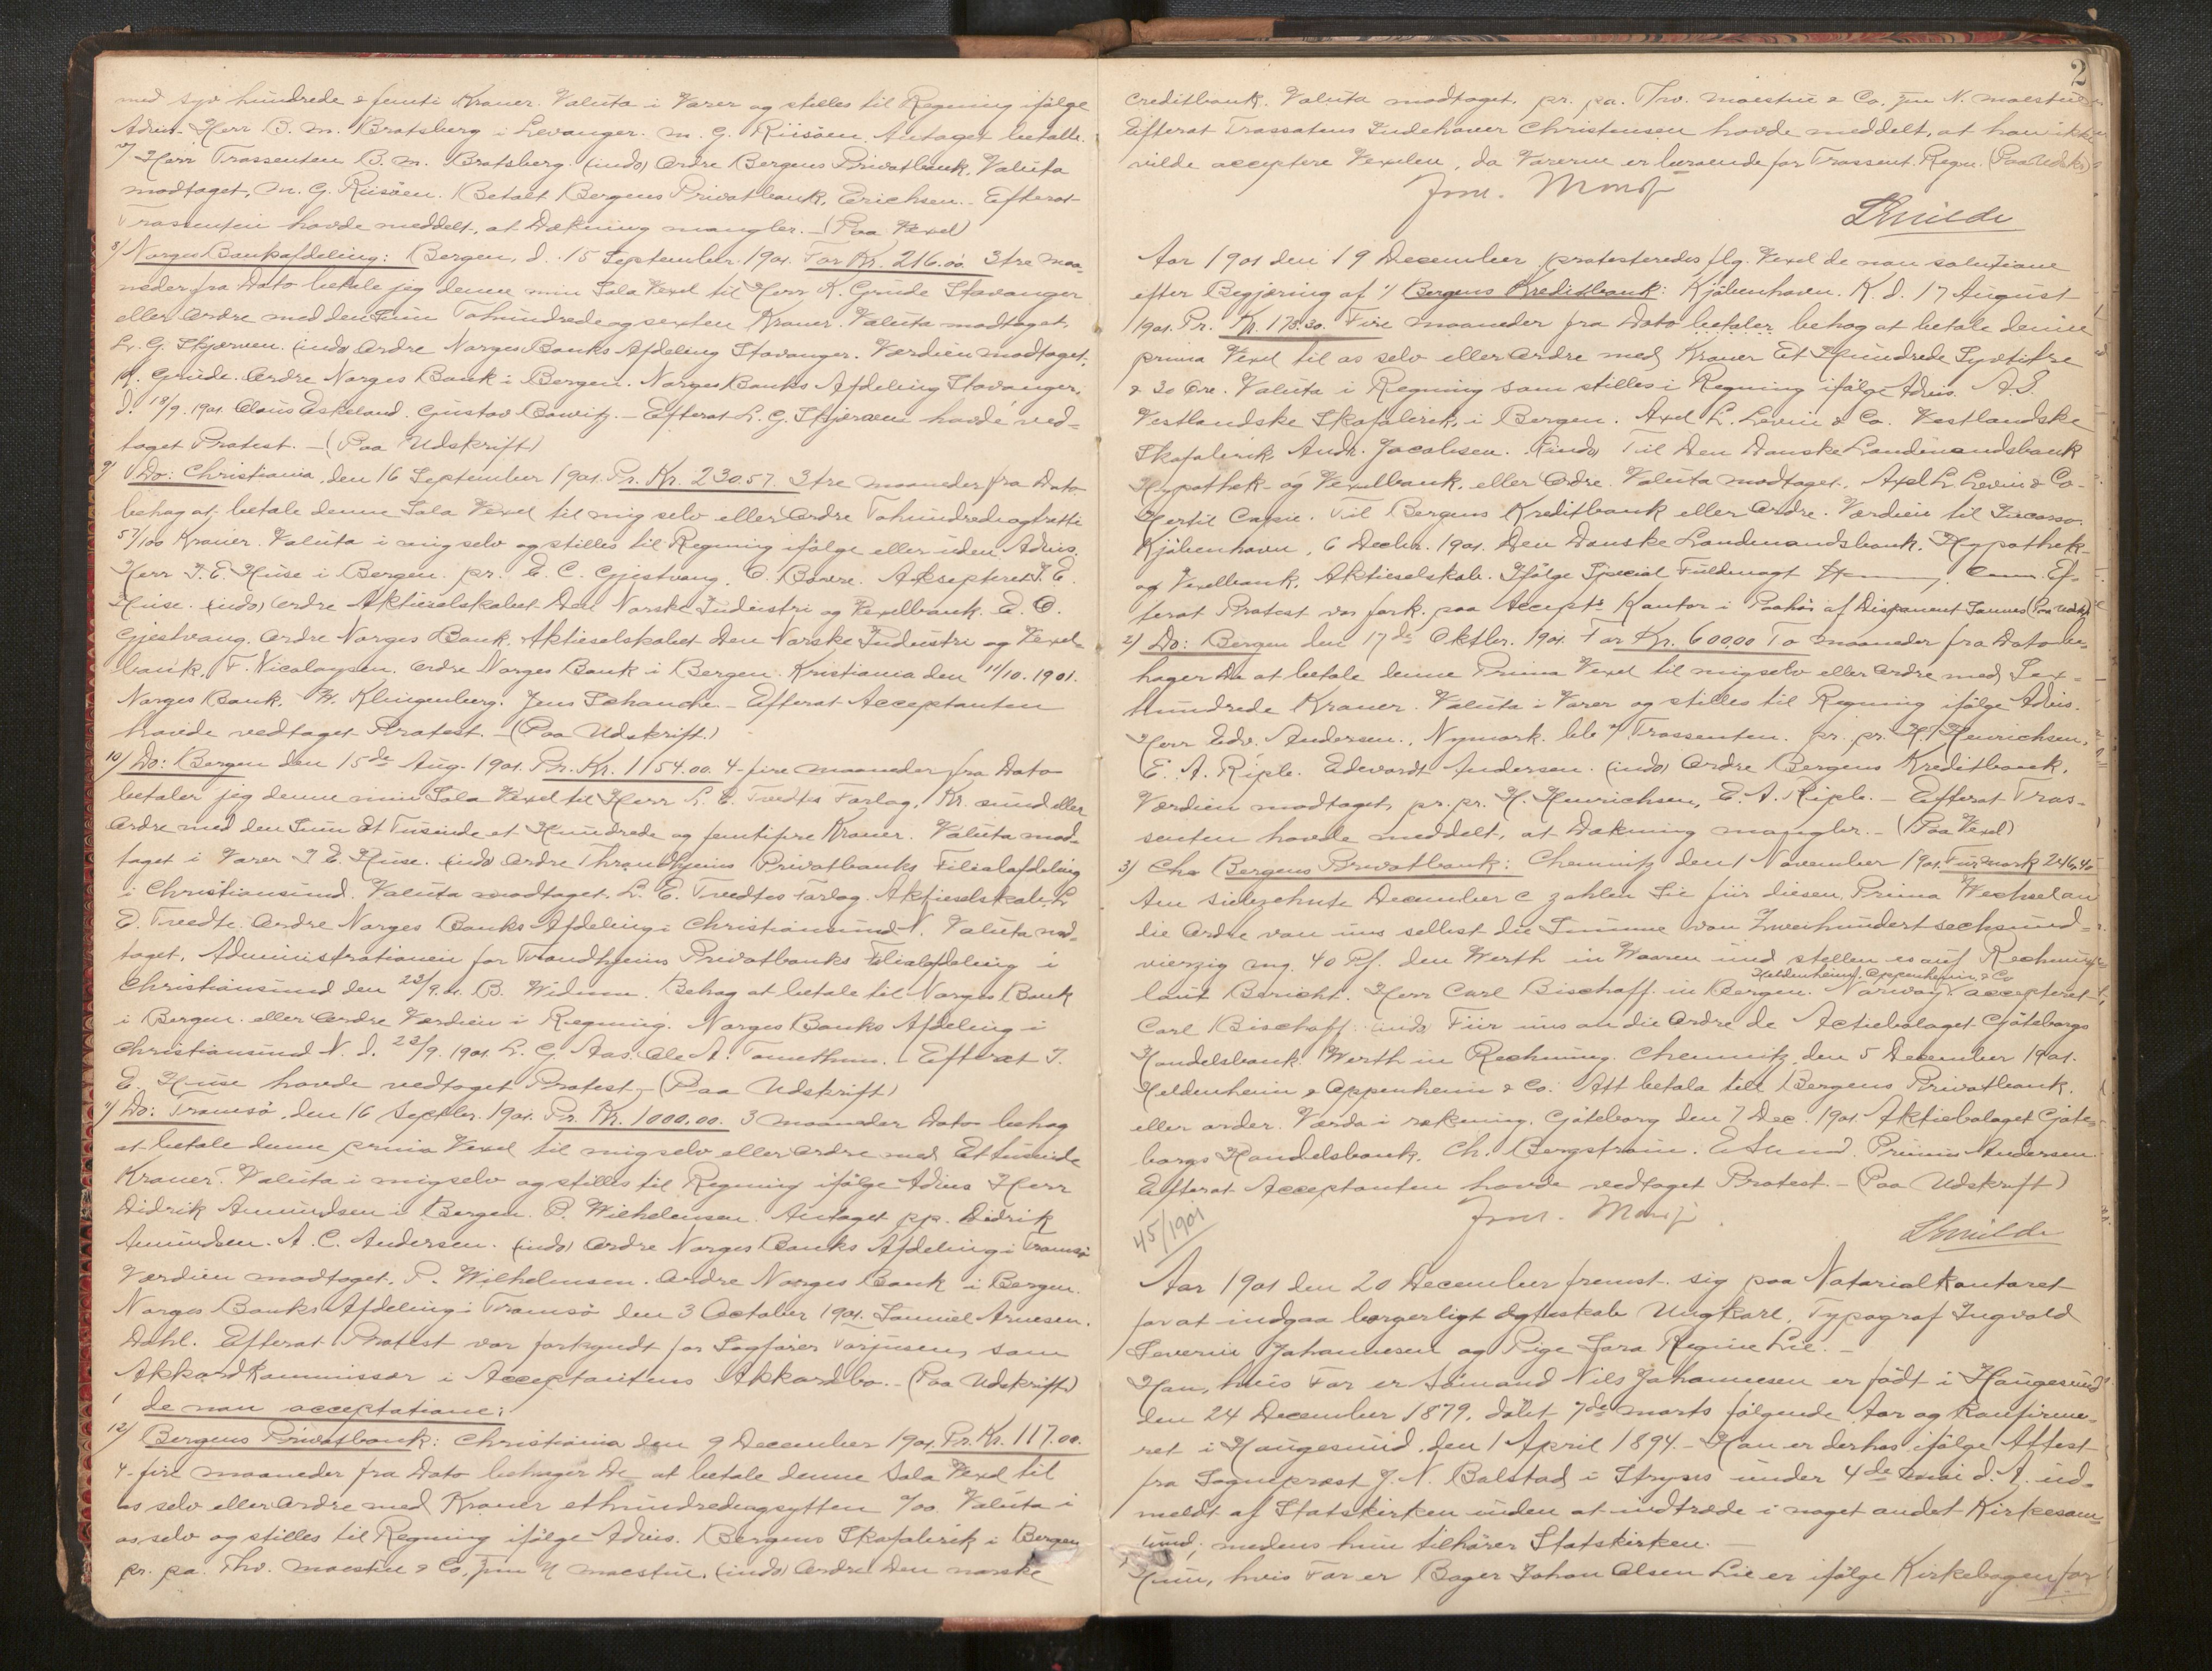 med syv hundrede & femti Kroner. Valuta i Varer og stilles til Regning ifølge
Advis. Herr B. M. Bratsberg i Levanger. M. G. Riisöen. Antaget betalt.
7/ Herr Trassenten B. M. Bratsberg. (indo) Ordre Bergens Privatbank. Valuta
modtaget, M. G. Riisöen. Betalt Bergens Privatbank, Erichsen. - Efterat
Trassenten havde meddelt, at Dækning mangler. - (Paa Vexel)
8/ Norges Bankafdeling: Bergen, d. 15 September 1901. For Kr. 216.00. 3 tre maa-
neder fra Dato betale jeg denne min Sola Vexel til Herr K. Grude Stavanger
eller Ordre med den Sum Tohundredeogsexten Kroner. Valuta modtaget.
L. G. Skjerven. (indo) Ordre Norges Banks Afdeling Stavanger. Værdien modtaget.
K. Grude. Ordre Norges Bank i Bergen. Norges Banks Afdeling Stavanger.
d. 18/9. 1901. Claus Eskeland. Gustav Bowitz. - Efterat L. G. Skjerven havde ved-
taget Protest. - (Paa Udskrift)
9/ Do: Christiania, den 16 September 1901. Pr. Kr. 230.57. 3 tre maaneder fra Dato
behag at betale denne Sola Vexel til mig selv eller Ordre Tohundredeogtretti
57/100 Kroner. Valuta i mig selv og stilles til Regning ifølge eller uden Advis.
Herr J. E. Huse i Bergen. pr. E. C. Gjestvang. C. Børre. Aksepteret J. E.
Huse. (indo) Ordre Aktieselskabet Den Norske Industri og Vexelbank. E. C.
Gjestvang. Ordre Norges Bank. Aktieselskabet Den Norske Industri og Vexel-
bank. F. Nicolaysen. Ordre Norges Bank i Bergen. Kristiania den 11/10. 1901.
Norges Bank. W. Klingenberg. Jens Schanche. - Efterat Acceptanten
havde vedtaget Protest. - (Paa Udskrift.)
10/ Do: Bergen den 15de Aug. 1901. Pr. Kr. 1154.00. 4 - fire maaneder fra Dato
betaler jeg denne min Sola Vexel til Herr L. E. Tvedtes Forlag, Kr. sund eller
Ordre med den Sum Et Tusinde et Hundrede og femtifire Kroner. Valuta mod-
taget i Varer J. E. Huse. (indo) Ordre Throndhjems Privatbanks Filialafdeling
i Christiansund. Valuta modtaget. L. E. Tvedtes Forlag. Aktieselskab. L.
E. Tvedte. Ordre Norges Banks Afdeling i Christiansund N. Valuta mod-
taget. Administrationen for Trondhjems Privatbanks Filialafdeling i
Christiansund den 23/9. 01. B. Widnun. Behag at betale til Norges Bank
i Bergen eller Ordre Værdien i Regning. Norges Banks Afdeling i
Christiansund N. d. 23/9. 1901. L. G. Aas. Ole A. - Efterat J.
E. Huse havde vedtaget Protest. - (Paa Udskrift)
11/ Do: Tromsö, den 16 Septbr. 1901. Pr. Kr. 1000.00. 3 maaneder Dato behag
at betale denne prima Vexel til mig selv eller Ordre med Et tusinde
Kroner. Valuta i mig selv og stilles til Regning ifølge Advis Herr
Didrik Amundsen i Bergen. P. Wilhelmsen. Antaget pp. Didrik
Amundsen. A. C. Andersen. (indo) Ordre Norges Banks Afdeling i Tromsö
Værdien modtaget. P. Wilhelmsen. Ordre Norges Bank i Bergen.
Norges Banks Afdeling i Tromsö den 3 October 1901. Samuel Arnesen.
Dahl. Efterat Protest var forkyndt for Sagfører Torjusen, som
Akkordkommissær i Acceptantens Akkordbo. - (Paa Udskrift)
de non acceptatione:
12/ Bergens Privatbank: Christiania den 9 December 1901. Pr. Kr. 117.00.
4 - fire maaneder fra Dato behager De at betale denne Sola Vexel til
os selv eller Ordre med Kroner ethundredeogsytten 0/00. Valuta i
os selv og stilles til Regning ifølge Advis. Bergens Skofabrik i Bergen
pr. pa. Thv. Moestue & Co, Jnn N Moestue. (indo) Ordre Den norske
2
Creditbank. Valuta modtaget, pr. pa. Thv. Moestue & Co. Jnn N. Moestue
Efterat Trassatens Indehaver Christensen havde meddelt, at han ikke
vilde acceptere Vexelen, da Varerne er beroende for Trassent. Regn. (Paa Udskr)
Aar 1901 den 19 December protesteredes flg. Vexel de non solutione
efter Begjæring af 1/ Bergens Kreditbank: Kjöbenhavn. K. d. 17 August
1901. Pr. Kr. 178.30. Fire maaneder fra Dato betaler behag at betale denne
prima Vexel til os selv eller Ordre med Kroner Et Hundrede Syvtifire
& 30 Øre. Valuta i Regning som stilles i Regning ifølge Advis. A. S.
Vestlandske Skofabrik, i Bergen. Axel L. Levin & Co. Vestlandske
Skofabrik Andr. Jacobsen. (indo) Til Den Danske Landmandsbank
Hypothek- og Vexelbank, eller Ordre. Valuta modtaget. Axel L. Levin & Co.
Hertil Copie. Til Bergens Kreditbank eller Ordre. Værdien til Incasso.
Kjöbenhavn, 6 Decbr. 1901. Den Danske Landmandsbank. Hypothek-
og Vexelbank. Aktieselskab. Ifølge Special Fuldmagt Ef-
terat Protest var fork. paa Accepts Kontor i Paahør af Disponent Sannes (Paa Udskr)
2/ Do: Bergen den 17de Oktbr. 1901. For Kr. 600.00 To maaneder fra Dato be-
hager De at betale denne Prima Vexel til mig selv eller Ordre med Sex-
hundrede Kroner. Valuta i Varer og stilles til Regning ifølge Advis.
Herr Edv. Andersen., Nymark. Trassenten. pr. pr. H. Henrichsen,
E. A. Riple. Edwardt Andersen. (indo) Ordre Bergens Kreditbank.
Værdien modtaget, pr. pr. H. Henrichsen, E. A. Riple. - Efterat Tras-
senten havde meddelt, at Dækning mangler. - (Paa Vexel)
3/ Bergens Privatbank: Chemnitz den 1 November 1901. Für Mark 246,40
Am siebzehnte December c zahlen Sie für diesen Prima Wechsel an
die Ordre von uns selbst die Summe von Zweihundertsechsund-
vierzig 40 Pf. den Werth in Waaren und stellen es auf Rechnung
laut Bericht. Herr Carl Bischoff in Bergen. Norway. Heldenheim, Oppenheim & Co accepteret
Carl Bischoff (indo) Für uns an die Ordre de Actiebolaget Göteborgs
Handelsbank. Werth in Rechnung. Chemnitz, den 5 December 1901.
Heldenheim & Oppenheim & Co. Att betala till Bergens Privatbank.
eller order. Värda i räkning. Göteborg den 7 Dec. 1901. Aktiebolaget Göte-
borgs Handelsbank. Ch. Bergström. Primus Andersen
Efterat Acceptanten havde vedtaget Protest. - (Paa Udskrift)
45/1901
Aar 1901 den 20 December fremst. sig paa Notarialkontoret
for at indgaa borgerligt Ægteskab Ungkarl, Typograf Ingvald
Severin Johannesen og Pige Sara Regine Lie. -
Han, hvis Far er Sömand Nils Johannesen er födt i Haugesund
den 24 December 1879, döbt 7de marts fölgende Aar og konfirme-
ret i Haugesund den 1 April 1894. - Han er derhos ifölge Attest
fra Sogneprest J. N. Balstad i Stryn under 4de mai d. A. ud-
meldt af Statskirken uden at indtræde i noget andet Kirkesam-
fund, medens hun tilhörer Statskirken. -
Hun, hvis Far er Bager Johan Olsen Lie er ifölge Kirkebogen for